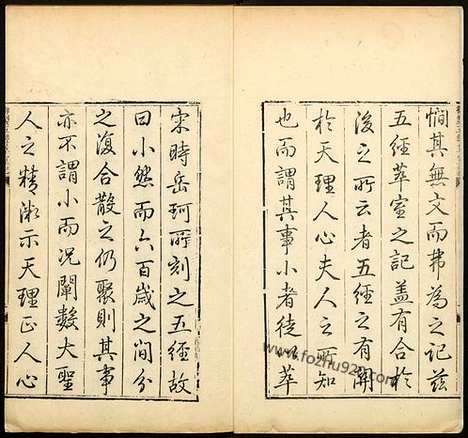 憫其無文而弗為之記茲
五經萃室之記蓋有合於
後之所云者五經之有關
於天理人心夫人之所知
也而謂其事小者徒以萃
宋時岳珂所刻之五經故
曰小然而六百歲之間分
之復合散之仍聚則其事
亦不謂小而況闡數大聖
人之精微示天理正人心